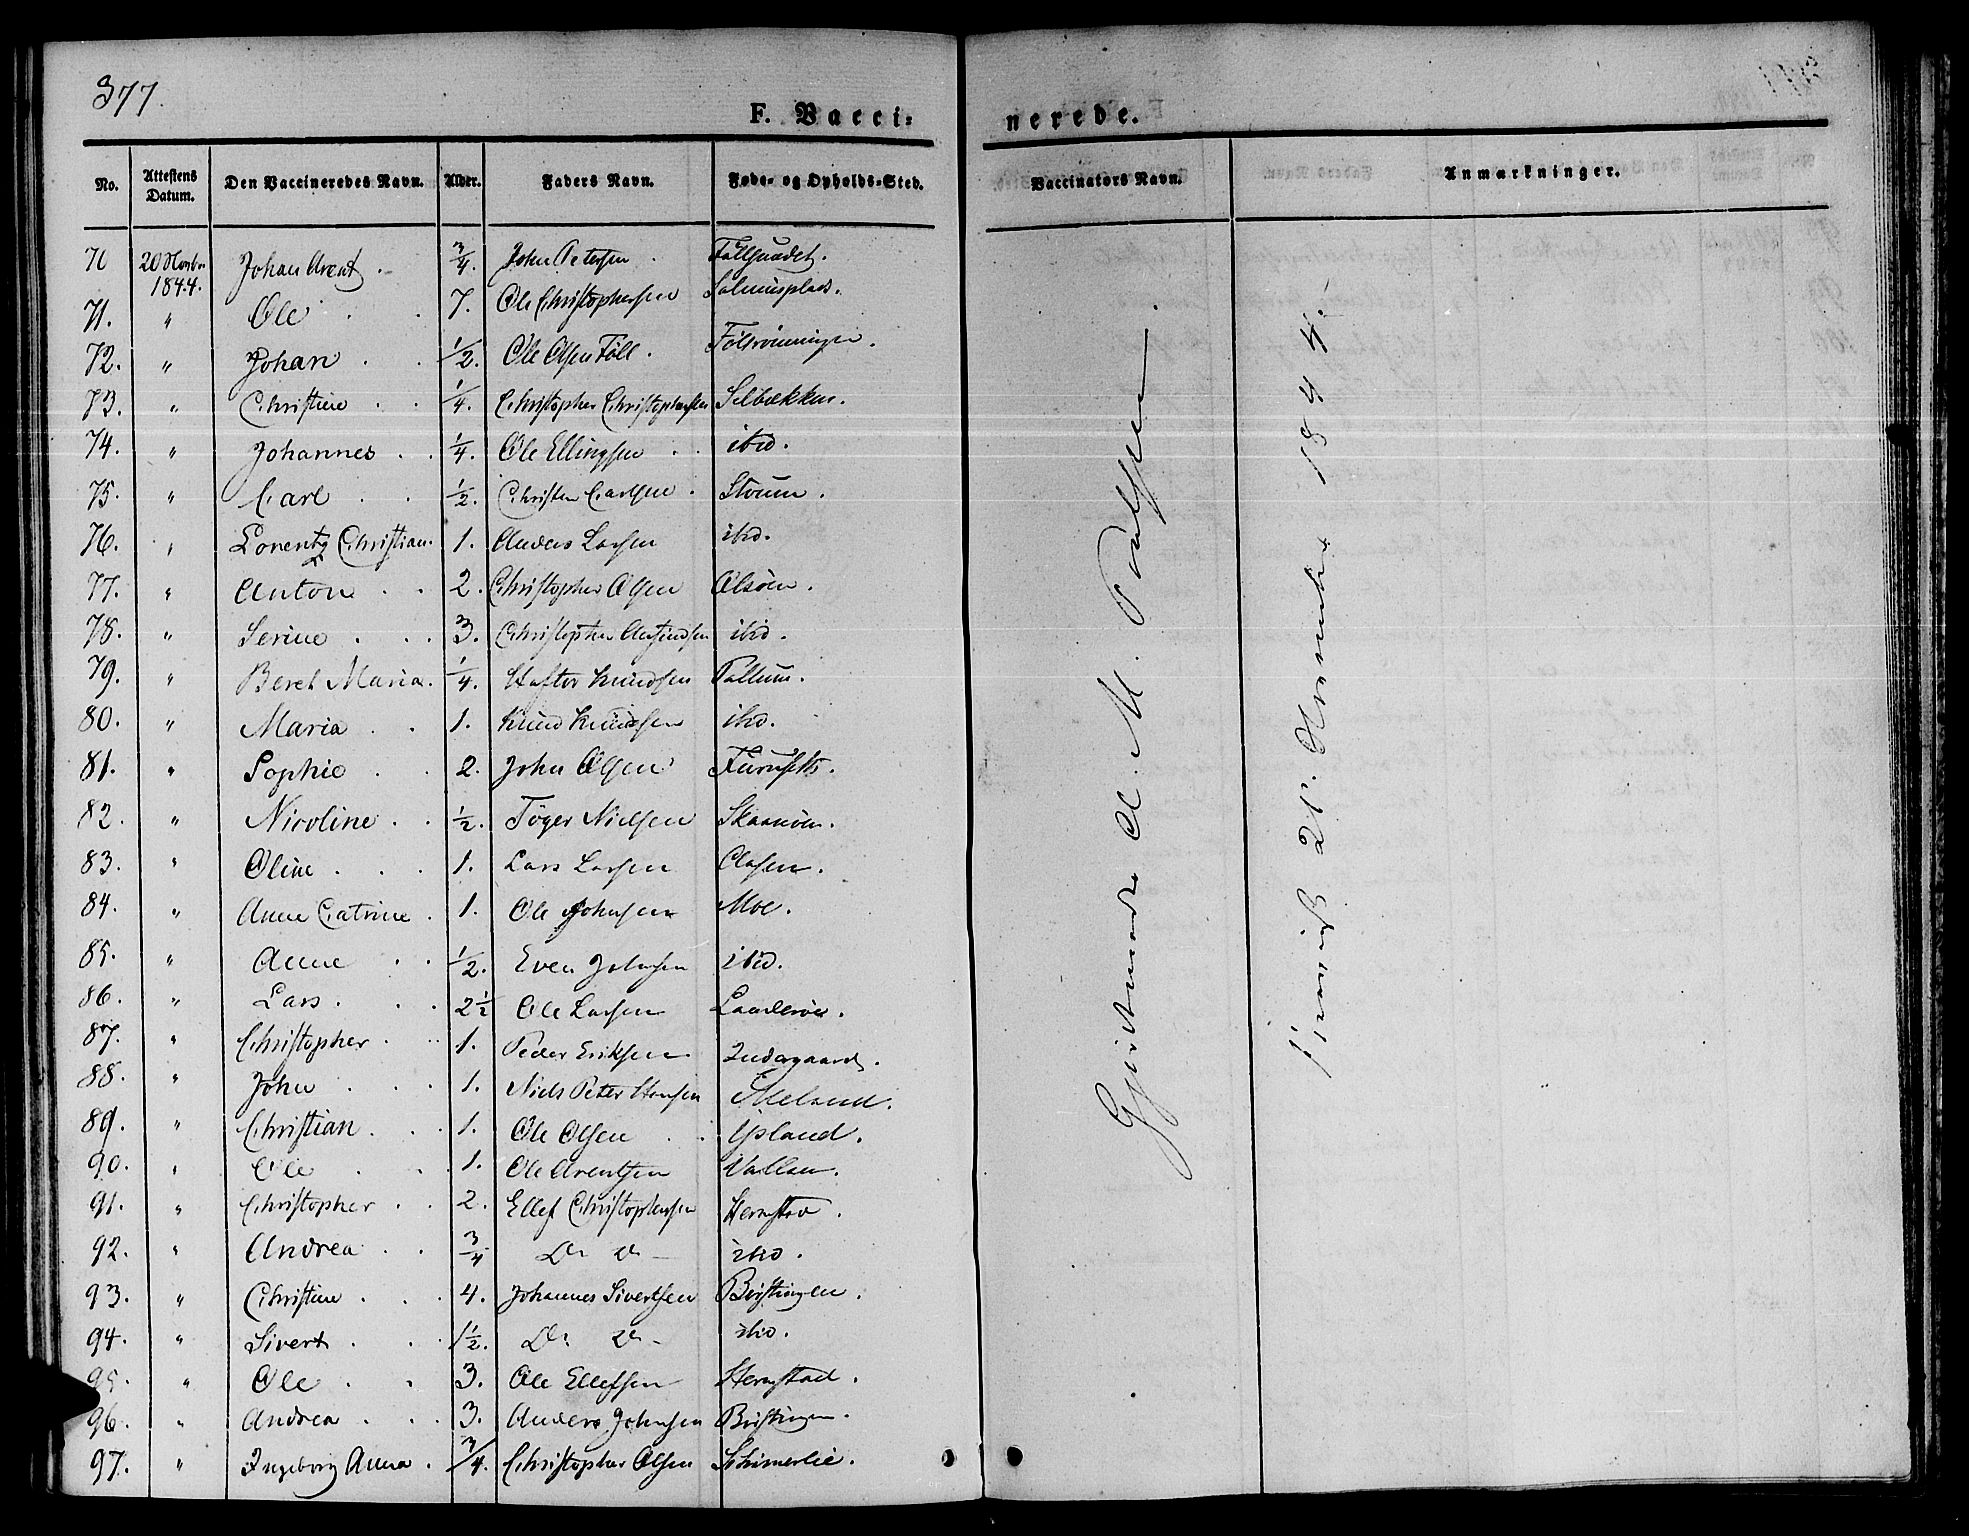 377.
F. Vacci-nerede.
No. Attestens Datum. Den Vaccineredes Navn. Alder. Faders Navn. Føde- og Opholds-Sted. Vaccinators Navn. Anmærkninger.
70 20 Novbr 1844. Johan Arent . 3/4. John Petersen .
71. " Ole . . 7. Ole Christophersen Salmusplads.
72. " Johan . . 1/2. Ole Olsen Föll . Föllrönningen .
73. " Christine . . 1/4. Christopher Christophersen Selbækken.
74. " Johannes . . 1/4. Ole Ellingsen . . ibid.
75. " Carl . . 1/2. Christen Carlsen . Strum .
76. " Lorentz Christian. 1. Anders Larsen ibid.
77. " Anton . . 2. Christopher Olsen Olsöen .
78. " Serine . . . 3. Christopher ibid .
79. " Beret Maria . 1/4. Hafter Knudsen
80. " Maria . . 1. Knud Knudsen ibid.
81. " Sophie . . 2. John Olsen Furusett .
82. " Nicoline . . 1/2. Töger Nielsen
83. " Oline . . . 1. Lars Larsen Clasen .
84. " Anne Catrine . 1. Ole Johnsen Moe .
85. " Anne . . 1/2. Even Johnsen ibid.
86. " Lars . . . 2 1/2 Ole Larsen
87. " Christopher . . 1. Peder Eriksen Indergaard .
88. " John . . . 1. Niels Peter Hansen Meland .
89. " Christian . . . 1. Ole Olsen . . Opland .
90. " Ole . . 1. Ole Arentsen Vollan .
91. " Christopher . . 2. Ellef Christophersen Hernstad .
92. " Andrea . . 3/4 Do do - ibid .
93. " Christine . . . 4. Johannes Sivertsen Böstingen .
94. " Sivert . . . 1 1/2. Do do - ibid .
95. " Ole . . 3. Ole Ellefsen Hernstad .
96. " Andrea . . . 3. Anders Johnsen Böstingen .
97. " Ingeborg Anna . 3/4. Christopher Olsen
A. M.
21de November 1844.